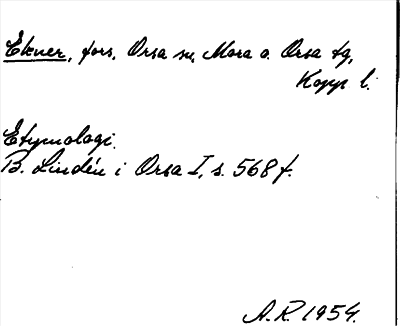 Ekner, fors, Orsa sn, Mora o. Orsa tg,
Kopp l.
Etymologi.
B. Lindén i Orsa I, s. 568 f.
A.R. 1954.